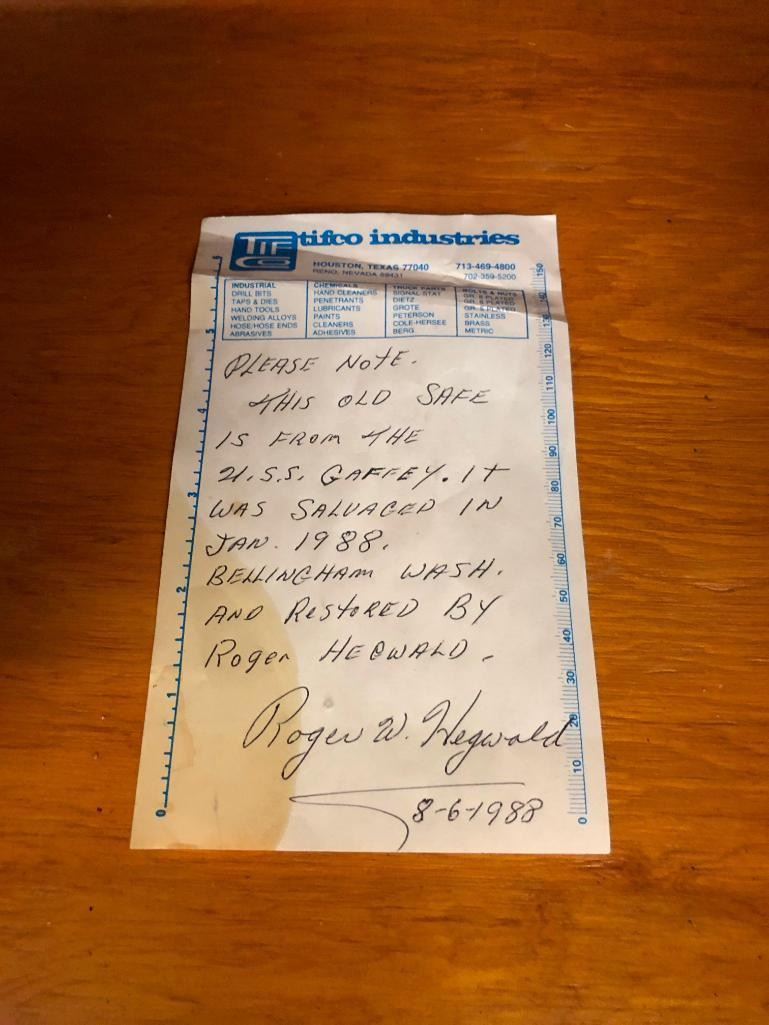 TIF
CO
tifco industries
HOUSTON, TEXAS 77040 713-469-4800
RENO, NEVADA 89431 702-359-5200
INDUSTRIAL
DRILL BITS
TAPS & DIES
HAND TOOLS
WELDING ALLOYS
HOSE/HOSE ENDS
ABRASIVES
CHEMICALS
HAND CLEANERS
PENETRANTS
LUBRICANTS
PAINTS
CLEANERS
ADHESIVES
TRUCK PARTS
SIGNAL STAT
DIETZ
GROTE
PETERSON
COLE-HERSEE
BERG
BOLTS & NUTS
GR. 8 PLATED
GR. 5 PLATED
STAINLESS
BRASS
METRIC
PLEASE NOTE.
THIS OLD SAFE
IS FROM THE
U.S.S. GAFFEY. IT
WAS SALVAGED IN
JAN. 1988.
BELLINGHAM WASH.
AND RESTORED BY
Roger HEGWALD.
Roger W. Hegwald
8-6-1988
0 1 2 3 4 5 6
0 10 20 30 40 50 60 70 80 90 100 110 120 130 140 150